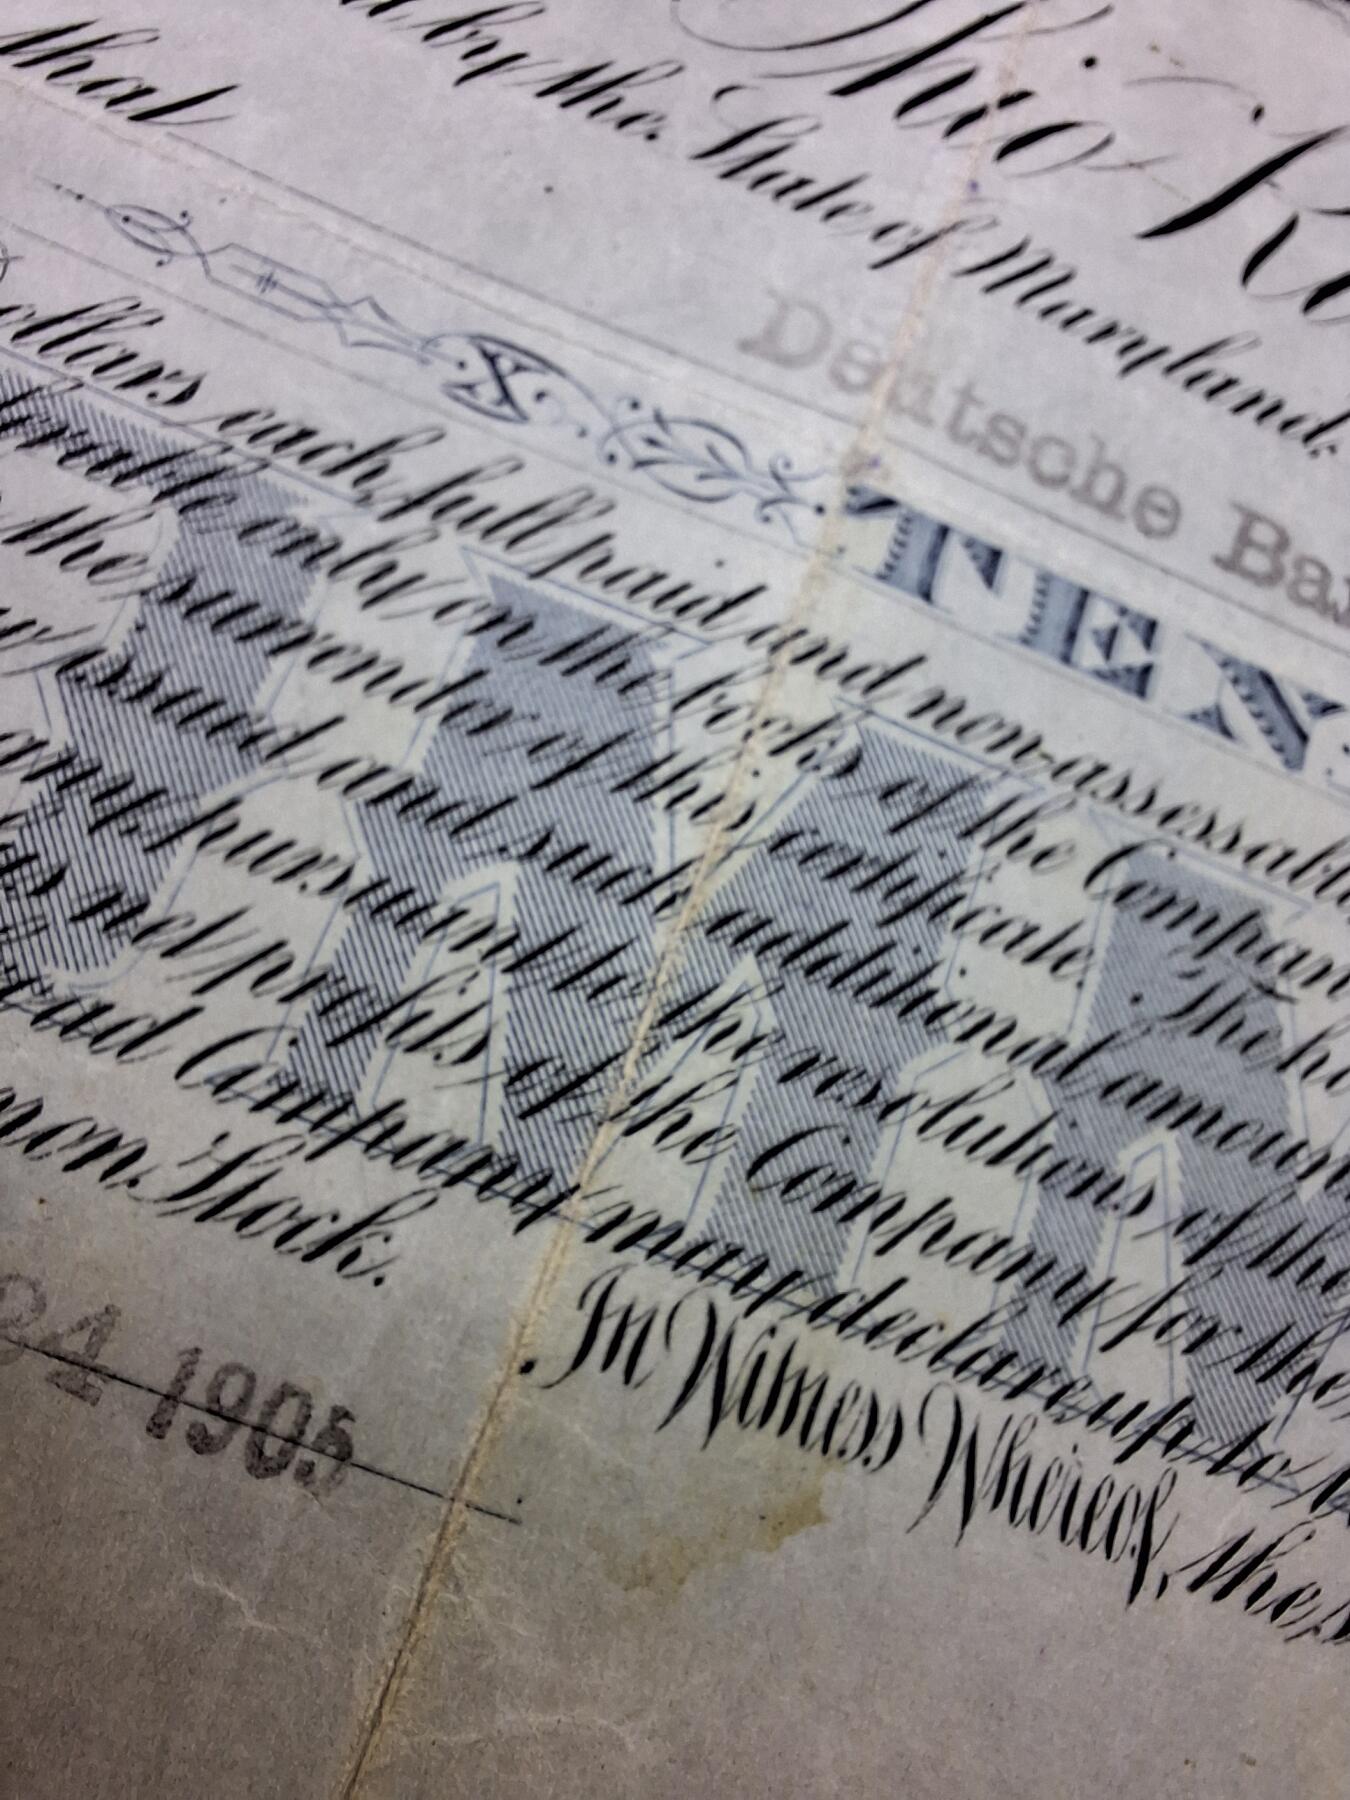 Ohio
by the State of Maryland.
that Deutsche
TEN
ollars each, full paid and non-assessabl
only on the books of the Compan
the surrender of this certificate. The ho
issued and such additional amoun
any, pursuant to the resolutions of the
as net profits of the Company for the
Company may declare up to
mon Stock.
In Witness Whereof, the
24 1905